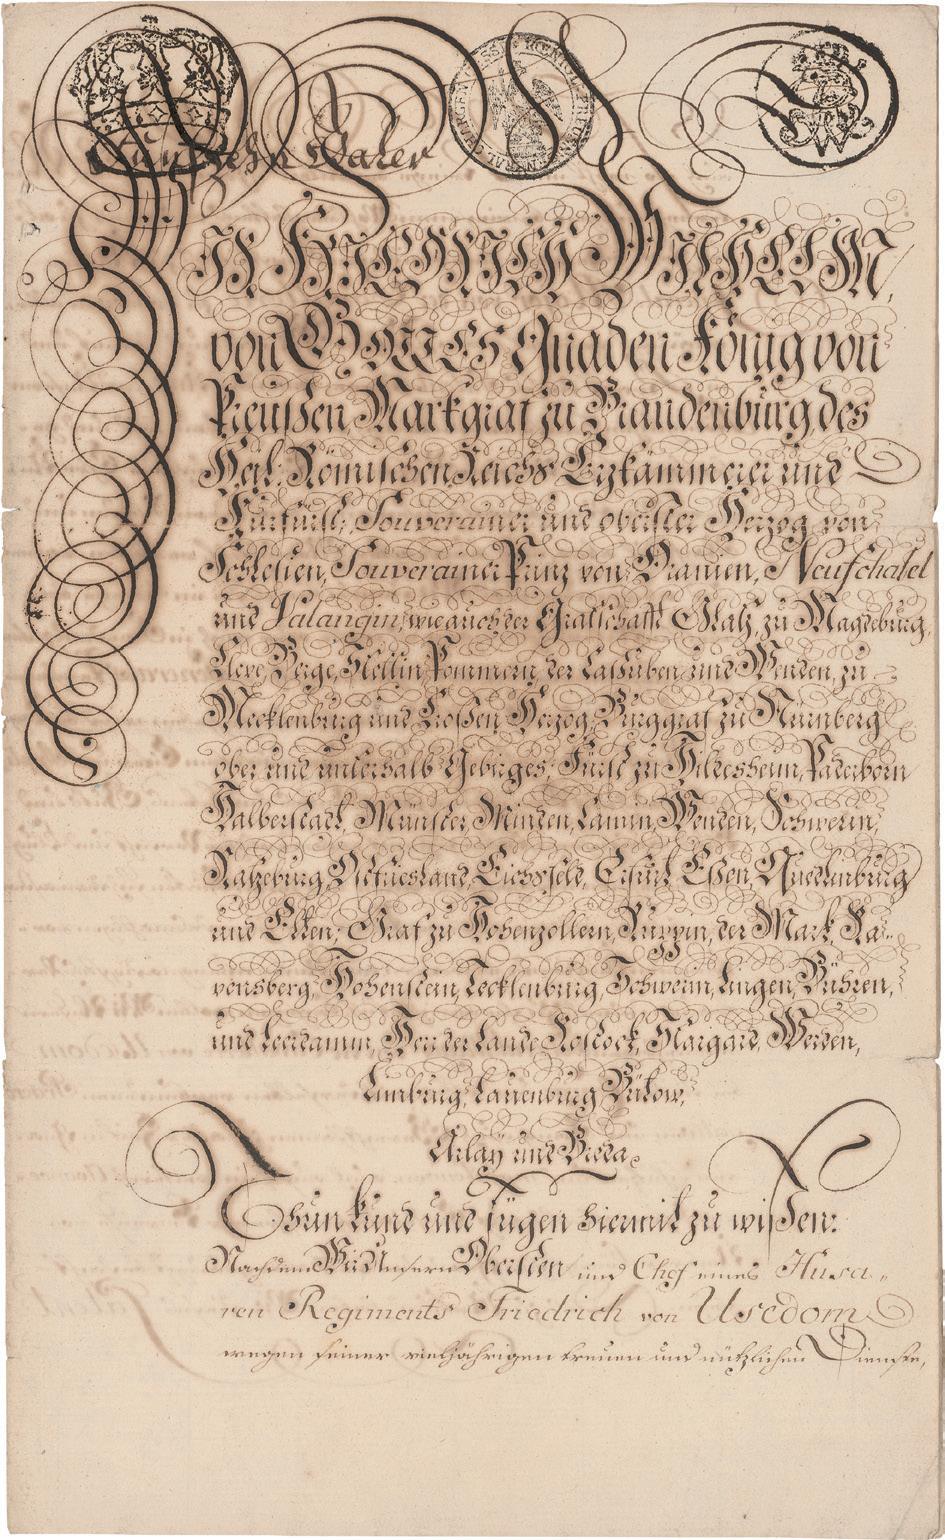 Funfzehn Thaler
Wir Friedrich Wilhelm,
von Gottes Gnaden König von
Preußen Markgraf zu Brandenburg des
Heil: Römischen Reichs Erzkämmerer und
Kurfürst; Souverainer und oberster Herzog von
Schlesien, Souverainer Prinz von Oranien, Neufchatel
und Valangin, wie auch der Grafschafft Glatz, zu Magdeburg,
Cleve, Berge, Stettin, Pommern, der Cassuben und Wenden, zu
Mecklenburg und Croßen Herzog, Burggraf zu Nürnberg
ober und unterhalb Gebirges; Fürst zu Hildesheim, Paderborn
Halberstadt, Münster, Minden, Camin, Wenden, Schwerin,
Ratzeburg, Ostfriesland, Eichsfeld, Erfurt, Eßen, Quedlinburg
und Elten; Graf zu Hohenzollern, Ruppin, der Mark, Ra-
vensberg, Hohenstein, Tecklenburg, Schwerin, Lingen, Bühren,
und Leerdamm, Herr der Lande Rostock, Stargard, Werden,
Limburg, Lauenburg, Bütow,
Arlay und Breda.
Thun kund und fügen hiermit zu wißen:
Nachdem Wir Unsern Obersten und Chef eines Husa-
ren Regiments Friedrich von Usedom
wegen seiner vieljährigen treuen und nützlichen Dienste,